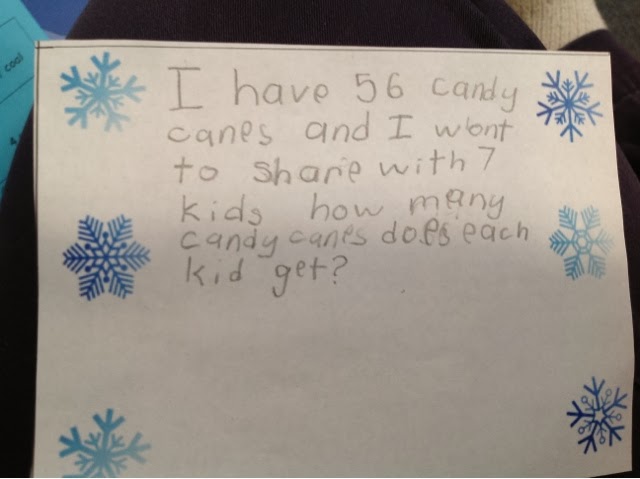 cool
I have 56 candy
canes and I wont
to share with 7
kids how many
candy canes does each
kid get?